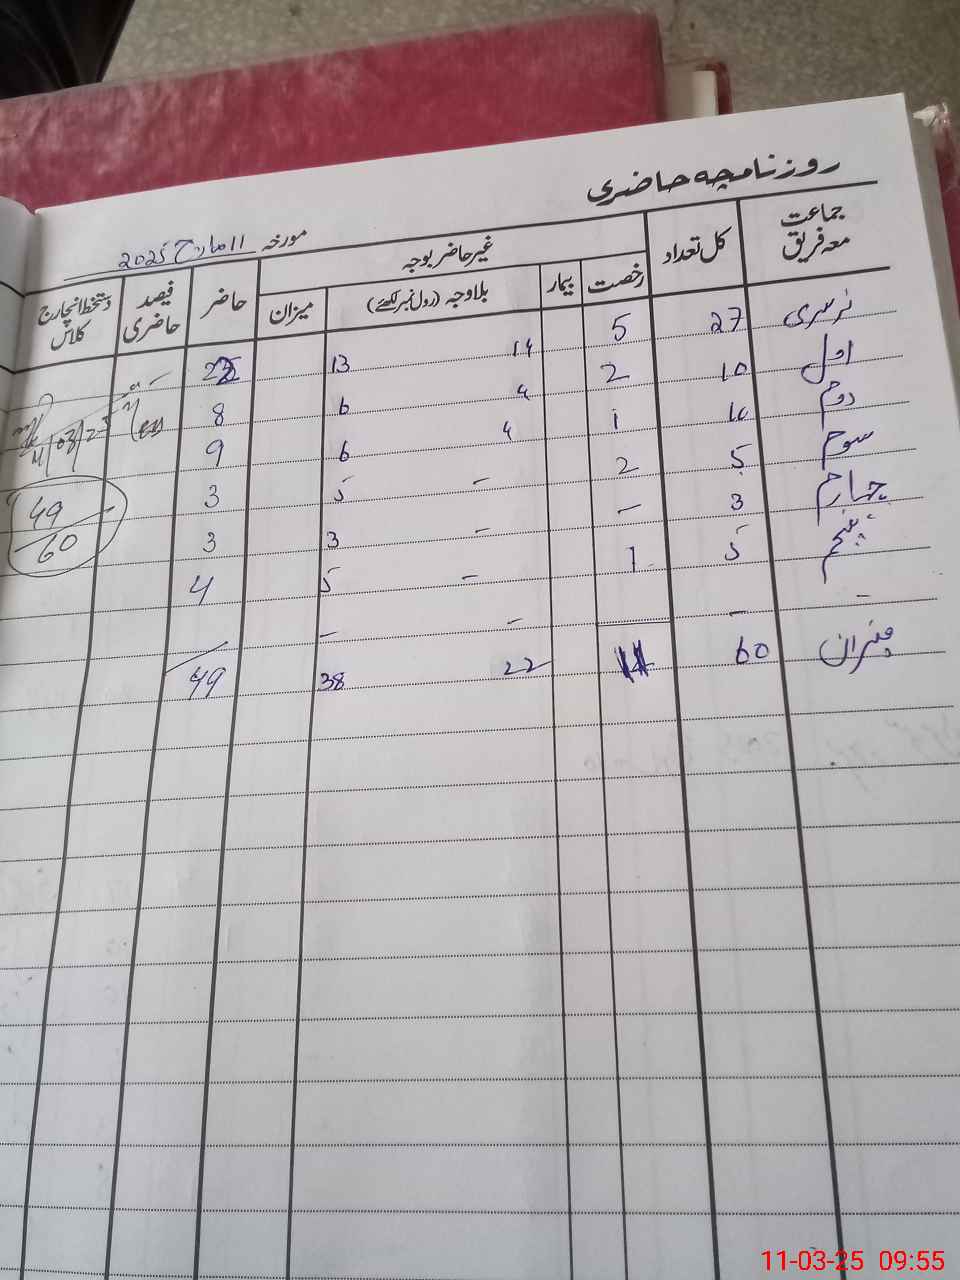 روزنامچہ حاضری
مورخہ 11 مارچ 2025
جماعت معہ فریق کل تعداد غیر حاضر بوجہ حاضر فیصد حاضری دستخط انچارج کلاس
رخصت بیمار بلاوجہ (رول نمبر لکھئے) میزان
نرسری 27 5 14 13
اول 10 2 4 6 8
دوم 10 1 4 6 9
سوم 5 2 - 5 3
چہارم 3 - - 3 3
پنجم 5 1 - 5 4
- - - -
میزان 60 11 22 38 49
11/03/25
49
60
11-03-25 09:55